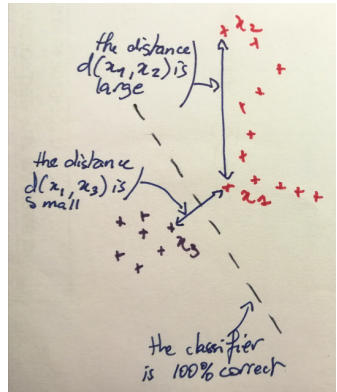 the distance
d(x₁, x₂) is
large
x₂
the distance
d(x₁, x₃) is
small
x₁
x₃
the classifier
is 100% correct